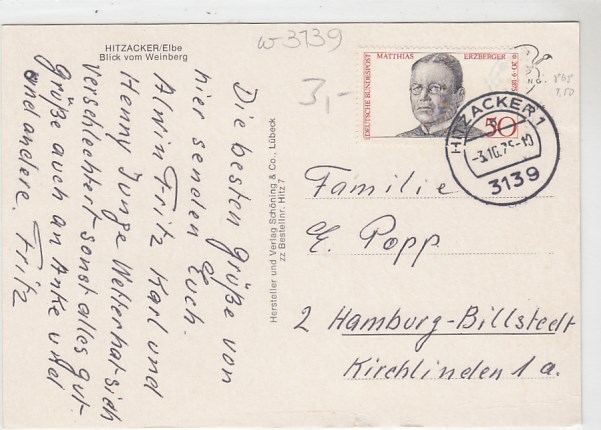 HITZACKER/Elbe
Blick vom Weinberg
w-3139
3,-
Die besten Grüße von
hier senden Euch.
Alwin Fritz Karl und
Henny Junge Wetter hat sich
Verschlechtert sonst alles gut-
grüße auch an Anke und
und andere. Fritz
Hersteller und Verlag Schöning & Co., Lübeck
zz Bestellnr. Hitz 7
MATTHIAS ERZBERGER
DEUTSCHE BUNDESPOST
50
HITZACKER 1
3139
Familie
E. Popp
2 Hamburg-Billstedt
Kirchlinden 1a.